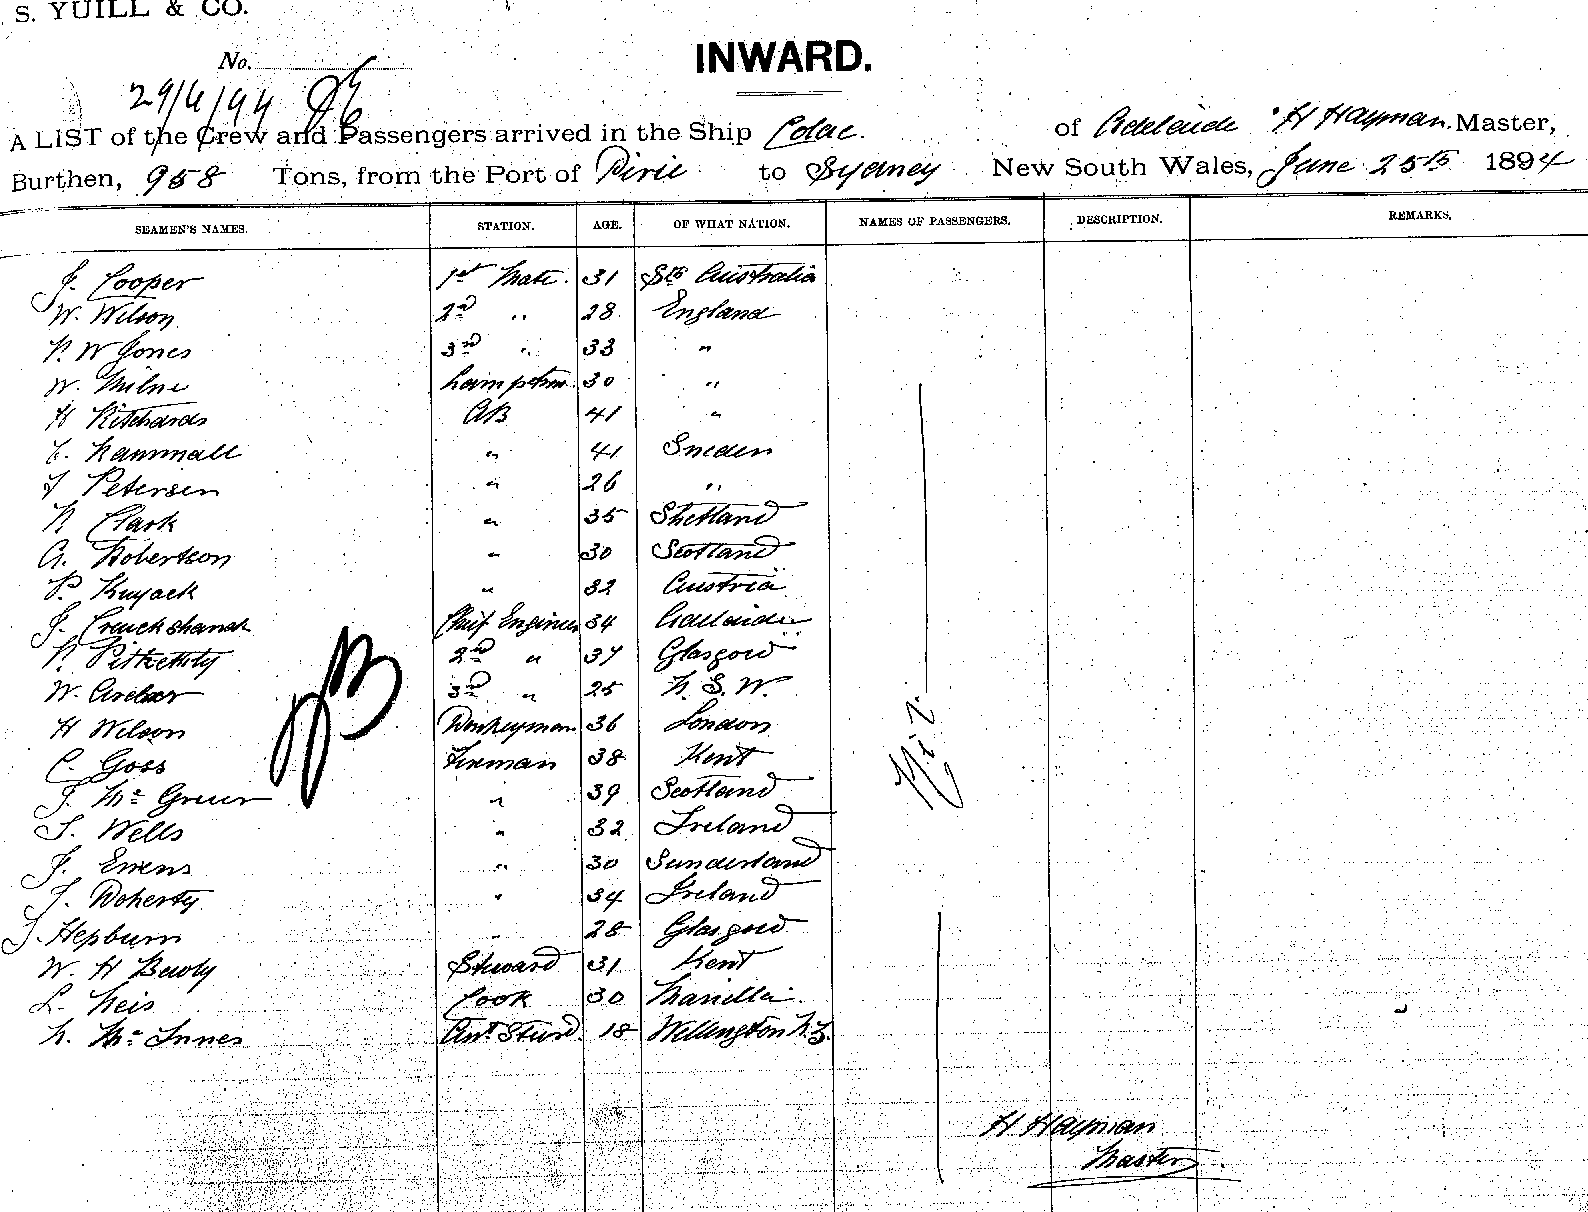 S. YUILL & CO.
INWARD.
No.
29/6/94
A LIST of the Crew and Passengers arrived in the Ship Colac. of Adelaide H Hayman Master,
Burthen, 958 Tons, from the Port of Pirie to Sydney New South Wales, June 25th 1894
SEAMEN'S NAMES. STATION. AGE. OF WHAT NATION. NAMES OF PASSENGERS. DESCRIPTION. REMARKS.
J. Cooper 1st Mate. 31 Sth Australia
W. Wilson 2nd " 28 England
P. W Jones 3rd " 33 "
W. Milne Lamptrm. 30 "
H Ritchards AB 41 "
C. Rammall " 41 Sweden
Petersen " 26 "
Clark " 35 Shetland
A. Robertson " 30 Scotland
P. Kuyack " 32 Austria
J. Cruickshank Chief Engineer 34 Adelaide
P. Pitkethly 2nd " 37 Glasgow
W. Archer 3rd " 25 N. S. W.
H Wilson Donkeyman 36 London
C. Goss Fireman 38 Kent
J. Mc " 39 Scotland
S. Wells " 32 Ireland
J. Ewens " 30 Sunderland
J. Doherty " 34 Ireland
J. Hepburn " 28 Glasgow
W. H Bewly Steward 31 Kent
L. Neis Cook 30 Manilla
N. Mc Innes Asst Stwd. 18 Wellington N.Z.
Nil
H. Hayman
Master